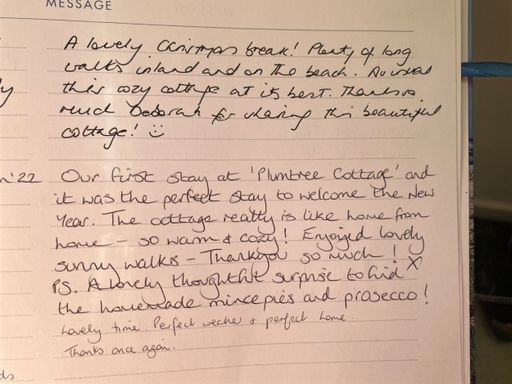 MESSAGE
A lovely Christmas break! Plenty of long
walks inland and on the beach. As usual
this cozy cottage at its best. Thanks so
much Deborah for sharing this beautiful
cottage! ☺
'22 Our first stay at 'Plumtree Cottage' and
it was the perfect stay to welcome the New
Year. The cottage really is like home from
home - so warm & cozy! Enjoyed lovely
sunny walks - Thankyou so much! X
PS. A lovely thoughtful surprise to find
the homemade mincepies and prosecco!
Lovely time. Perfect weather & perfect home.
Thanks once again.
ds